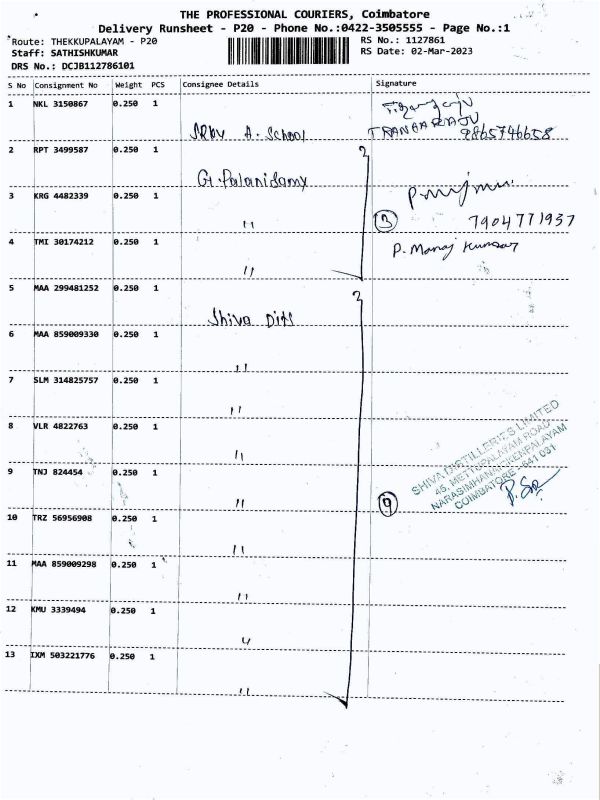 THE PROFESSIONAL COURIERS, Coimbatore
Delivery Runsheet - P20 - Phone No.:0422-3505555 - Page No.:1
Route: THEKKUPALAYAM - P20
Staff: SATHISHKUMAR
DRS No.: DCJB112786101
RS No.: 1127861
RS Date: 02-Mar-2023
S No Consignment No Weight PCS Consignee Details Signature
1 NKL 3150867 0.250 1
A. School 9865746658
2 RPT 3499587 0.250 1
G. Palanisamy
3 KRG 4482339 0.250 1
" ③ 7904771937
4 TMI 30174212 0.250 1 P. Manoj Kumar
"
5 MAA 299481252 0.250 1
Shiva Dits
6 MAA 859009330 0.250 1
"
7 SLM 314825757 0.250 1
"
8 VLR 4822763 0.250 1
"
SHIVA DISTILLERIES LIMITED
45, METTUPALAYAM ROAD
NARASIMHANAICKENPALAYAM
COIMBATORE - 641 031
9 TNJ 824454 0.250 1
" ⑨
10 TRZ 56956908 0.250 1
"
11 MAA 859009298 0.250 1
"
12 KMU 3339494 0.250 1
"
13 IXM 503221776 0.250 1
"